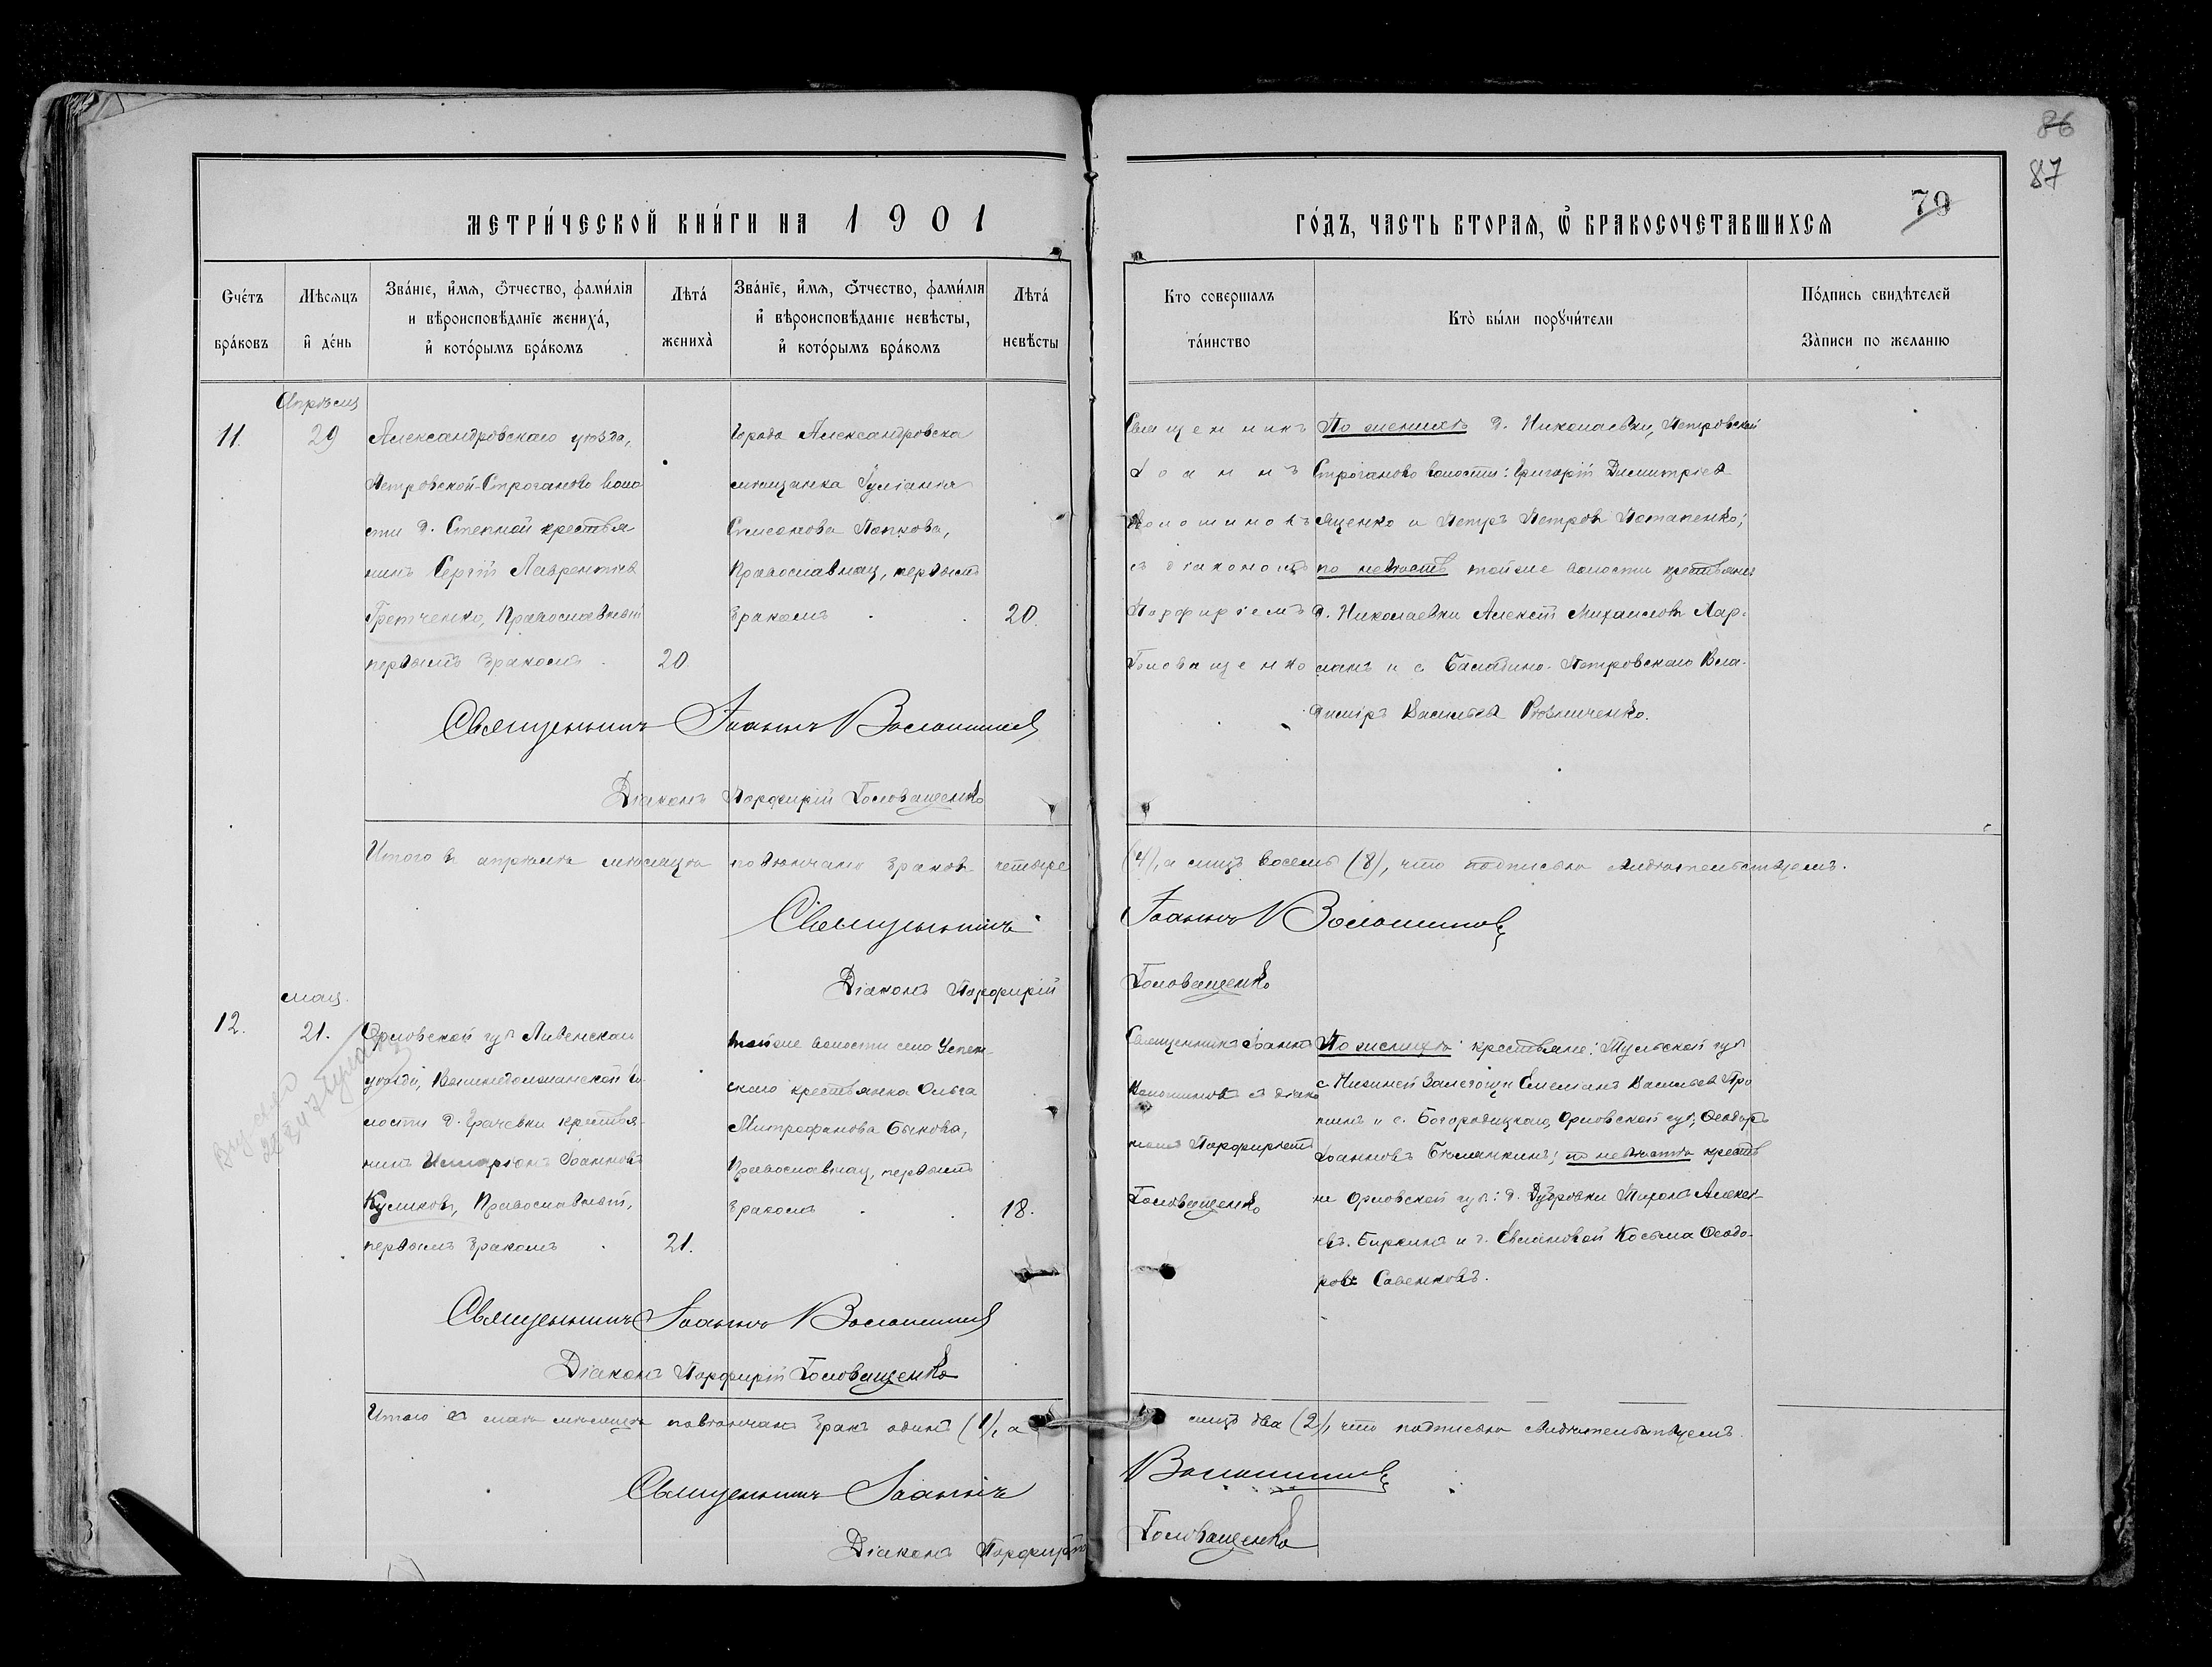 86
87
79
МЕТРИ́ЧЕСКОЙ КНИ́ГИ НА 1901
ГО́ДЪ, ЧАСТЬ ВТОРАѦ, Ѡ҆ БРАКОСОЧЕТАВШИХСѦ
Счéтъ бра́ковъ
Мѣсѧцъ и҆ де́нь
Зва́нїе, и҆́мѧ, ѻ҆́тчество, фами́лїѧ и вѣроисповѣ́данїе жениха́, и҆ кото́рымъ бра́комъ
Лѣта́ жениха̀
Зва́нїе, и҆́мѧ, ѻ҆́тчество, фами́лїѧ и҆ вѣроисповѣ́данїе невѣ́сты, и҆ кото́рымъ бра́комъ
Лѣта́ невѣ́сты
Кто совершалъ та́инство
Кто̀ бы́ли порꙋчи́тели
По́дпись свидѣ́телей За̀писи по желанїю
Апрѣля
11.
29
Александровскаго уѣзда,
Петровской-Строганово воло
сти д. Степной крестья
нинъ Сергій Лаврентіевъ
Православный
первымъ бракомъ
20.
Города Александровска
мѣщанка Іуліанія
Симеонова Попкова,
Православная, первымъ
бракомъ
20.
Священникъ
Іоаннъ
Волошиновъ
съ діакономъ
Порфиріемъ
Головащенко
По женихѣ д. Николаевки, Петровской
Строганово волости: Григорій Димитріевъ
Яценко и Петръ Петровъ Потапенко;
по невѣстѣ тойже волости крестьяне:
д. Николаевки Алексѣй Михаиловъ Лар-
и с. Петровскаго Вла-
диміръ Васильевъ
Священникъ Іоаннъ Волошиновъ
Діаконъ Порфирій Головащенко
Итого въ апрѣлѣ мѣсяцѣ повѣнчано браковъ четыре
(4), а лицъ восемь (8), что подписью свидѣтельствуемъ.
Священникъ Іоаннъ Волошиновъ
Діаконъ Порфирій Головащенко
мая
12.
21.
Орловской губ. Ливенскаго
уѣзда, во
лости д. Грачевки крестья-
нинъ Иларіонъ Іоанновъ
Куликовъ, Православный,
первымъ бракомъ
21.
тойже волости села Успен-
скаго крестьянка Ольга
Митрофанова Быкова,
Православная, первымъ
бракомъ
18.
Священникъ Іоаннъ
Волошиновъ съ діако
номъ Порфиріемъ
Головащенко
По женихѣ: крестьяне: Тульской губ.
с. Нижней Залегощи Емеліанъ Васильевъ Про
нинъ и с. Богородицкаго, Орловской губ., Ѳеодоръ
Іоанновъ по невѣстѣ крестья
не Орловской губ.: д. Дубровки Алексѣ-
евъ Биркинъ и Косьма Ѳеодо-
ровъ Савенковъ.
Священникъ Іоаннъ Волошиновъ
Діаконъ Порфирій Головащенко
Итого въ маѣ мѣсяцѣ повѣнчанъ бракъ одинъ (1), а
лицъ два (2), что подписью свидѣтельствуемъ.
Священникъ Іоаннъ Волошиновъ
Діаконъ Порфирій Головащенко